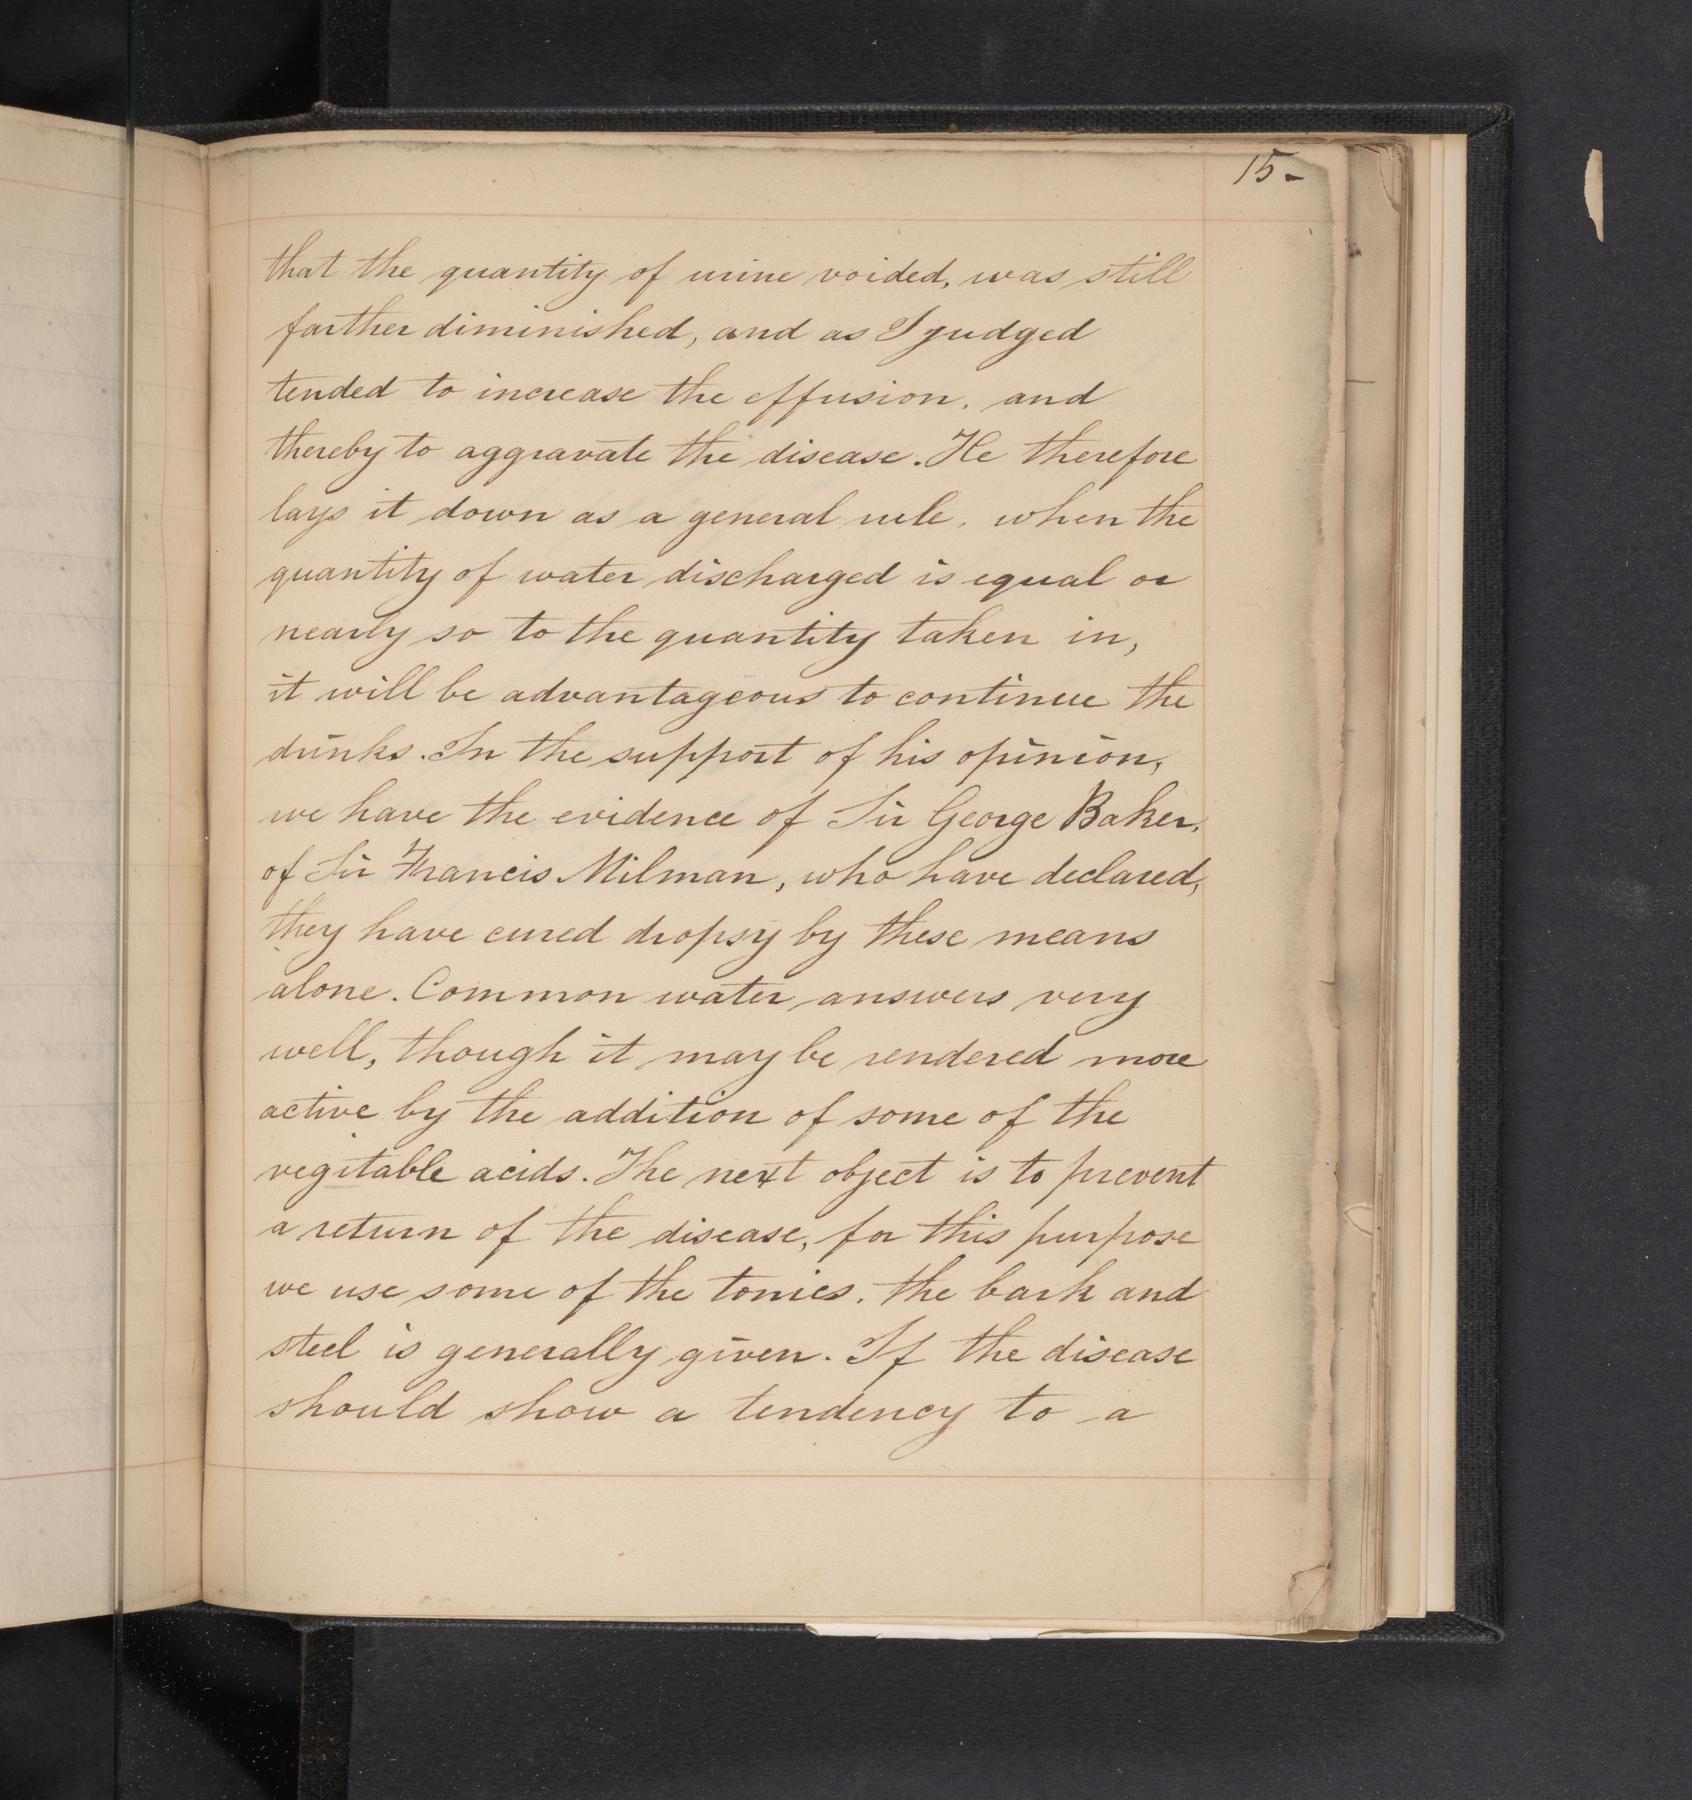 15-
that the quantity of urine voided, was still
farther diminished, and as I judged
tended to increase the effusion, and
thereby to aggravate the disease. He therefore
lays it down as a general rule, when the
quantity of water discharged is equal or
nearly so to the quantity taken in,
it will be advantageous to continue the
drinks. In the support of his opinion,
we have the evidence of Sir George Baker,
of Sir Francis Milman, who have declared,
they have cured dropsy by these means
alone. Common water answers very
well, though it may be rendered more
active by the addition of some of the
vegitable acids. The next object is to prevent
a return of the disease, for this purpose
we use some of the tonics. the bark and
steel is generally given. If the disease
should show a tendency to a